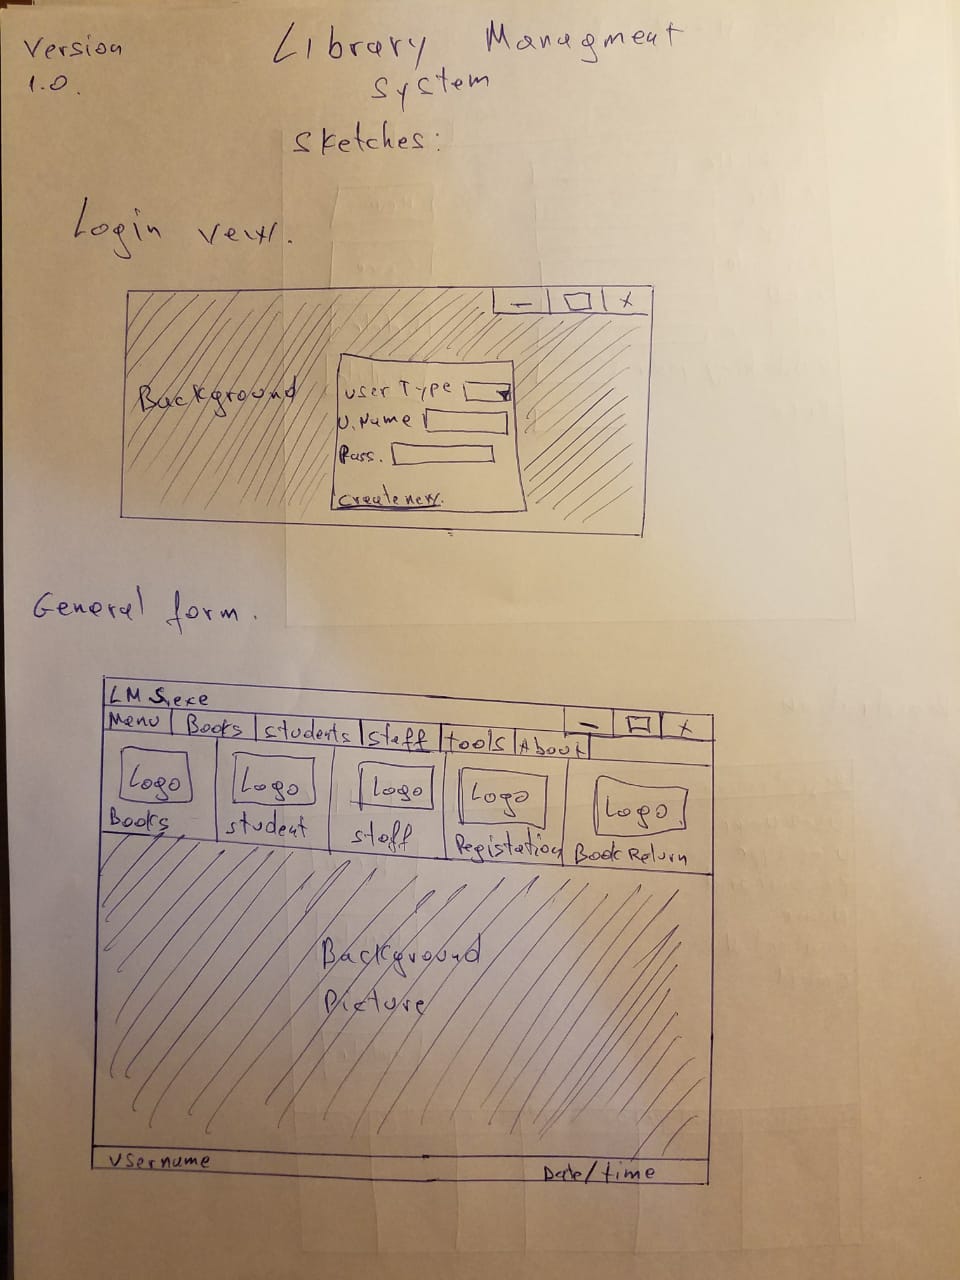 Version
1.0.
Library Managment
System
Sketches:
Login
Background
User Type
U.Name
Pass.
Create new.
General form.
LMS.exe
Menu Books Students Staff Tools About
Logo Logo Logo Logo Logo
Books Student Staff Registation Book Return
Background
Picture
Username Date/time